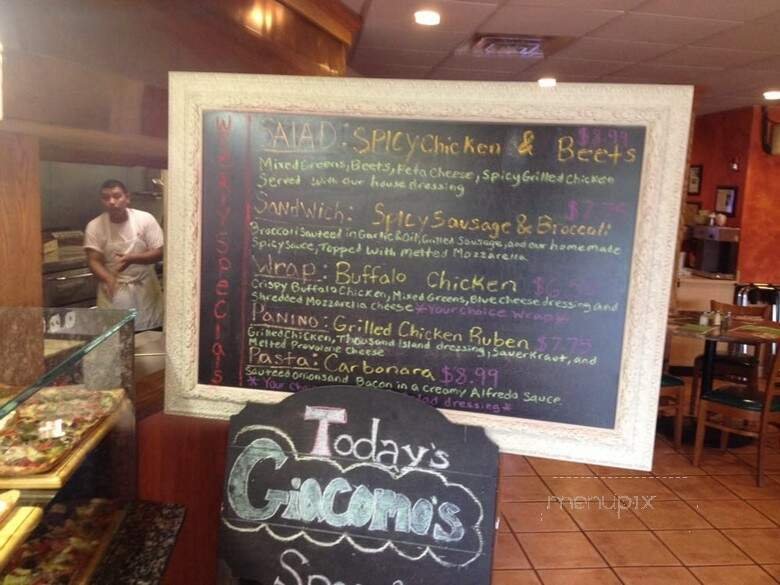 Weekly Specials
SALAD: SPICY Chicken & Beets $8.99
Mixed Greens, Beets, Feta Cheese, Spicy Grilled Chicken
Served with our house dressing
SANDWich: SPICY Sausage & Broccoli $7.75
Broccoli Sauteed in Garlic & Oil, Grilled Sausage, and our homemade
Spicy Sauce, Topped with Melted Mozzarella
Wrap: Buffalo Chicken
Crispy Buffalo Chicken, Mixed Greens, Blue cheese dressing and
Shredded Mozzarella cheese *Your choice Wrap*
PANINO: Grilled Chicken Ruben $7.75
Grilled Chicken, Thousand Island dressing, Sauerkraut, and
Melted Provalone Cheese
Pasta: Carbonara $8.99
Sauteed onions and Bacon in a creamy Alfredo Sauce
*Your dressing*
Today's
GiacoMo's
menupix